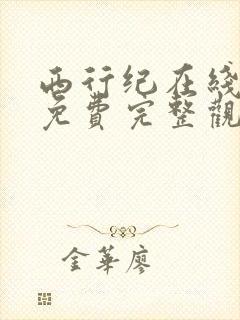 西行纪在綫
免費完整觀
金華廖